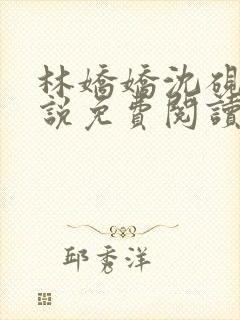 林嬌嬌沈硯
說免費閱讀
邱秀洋